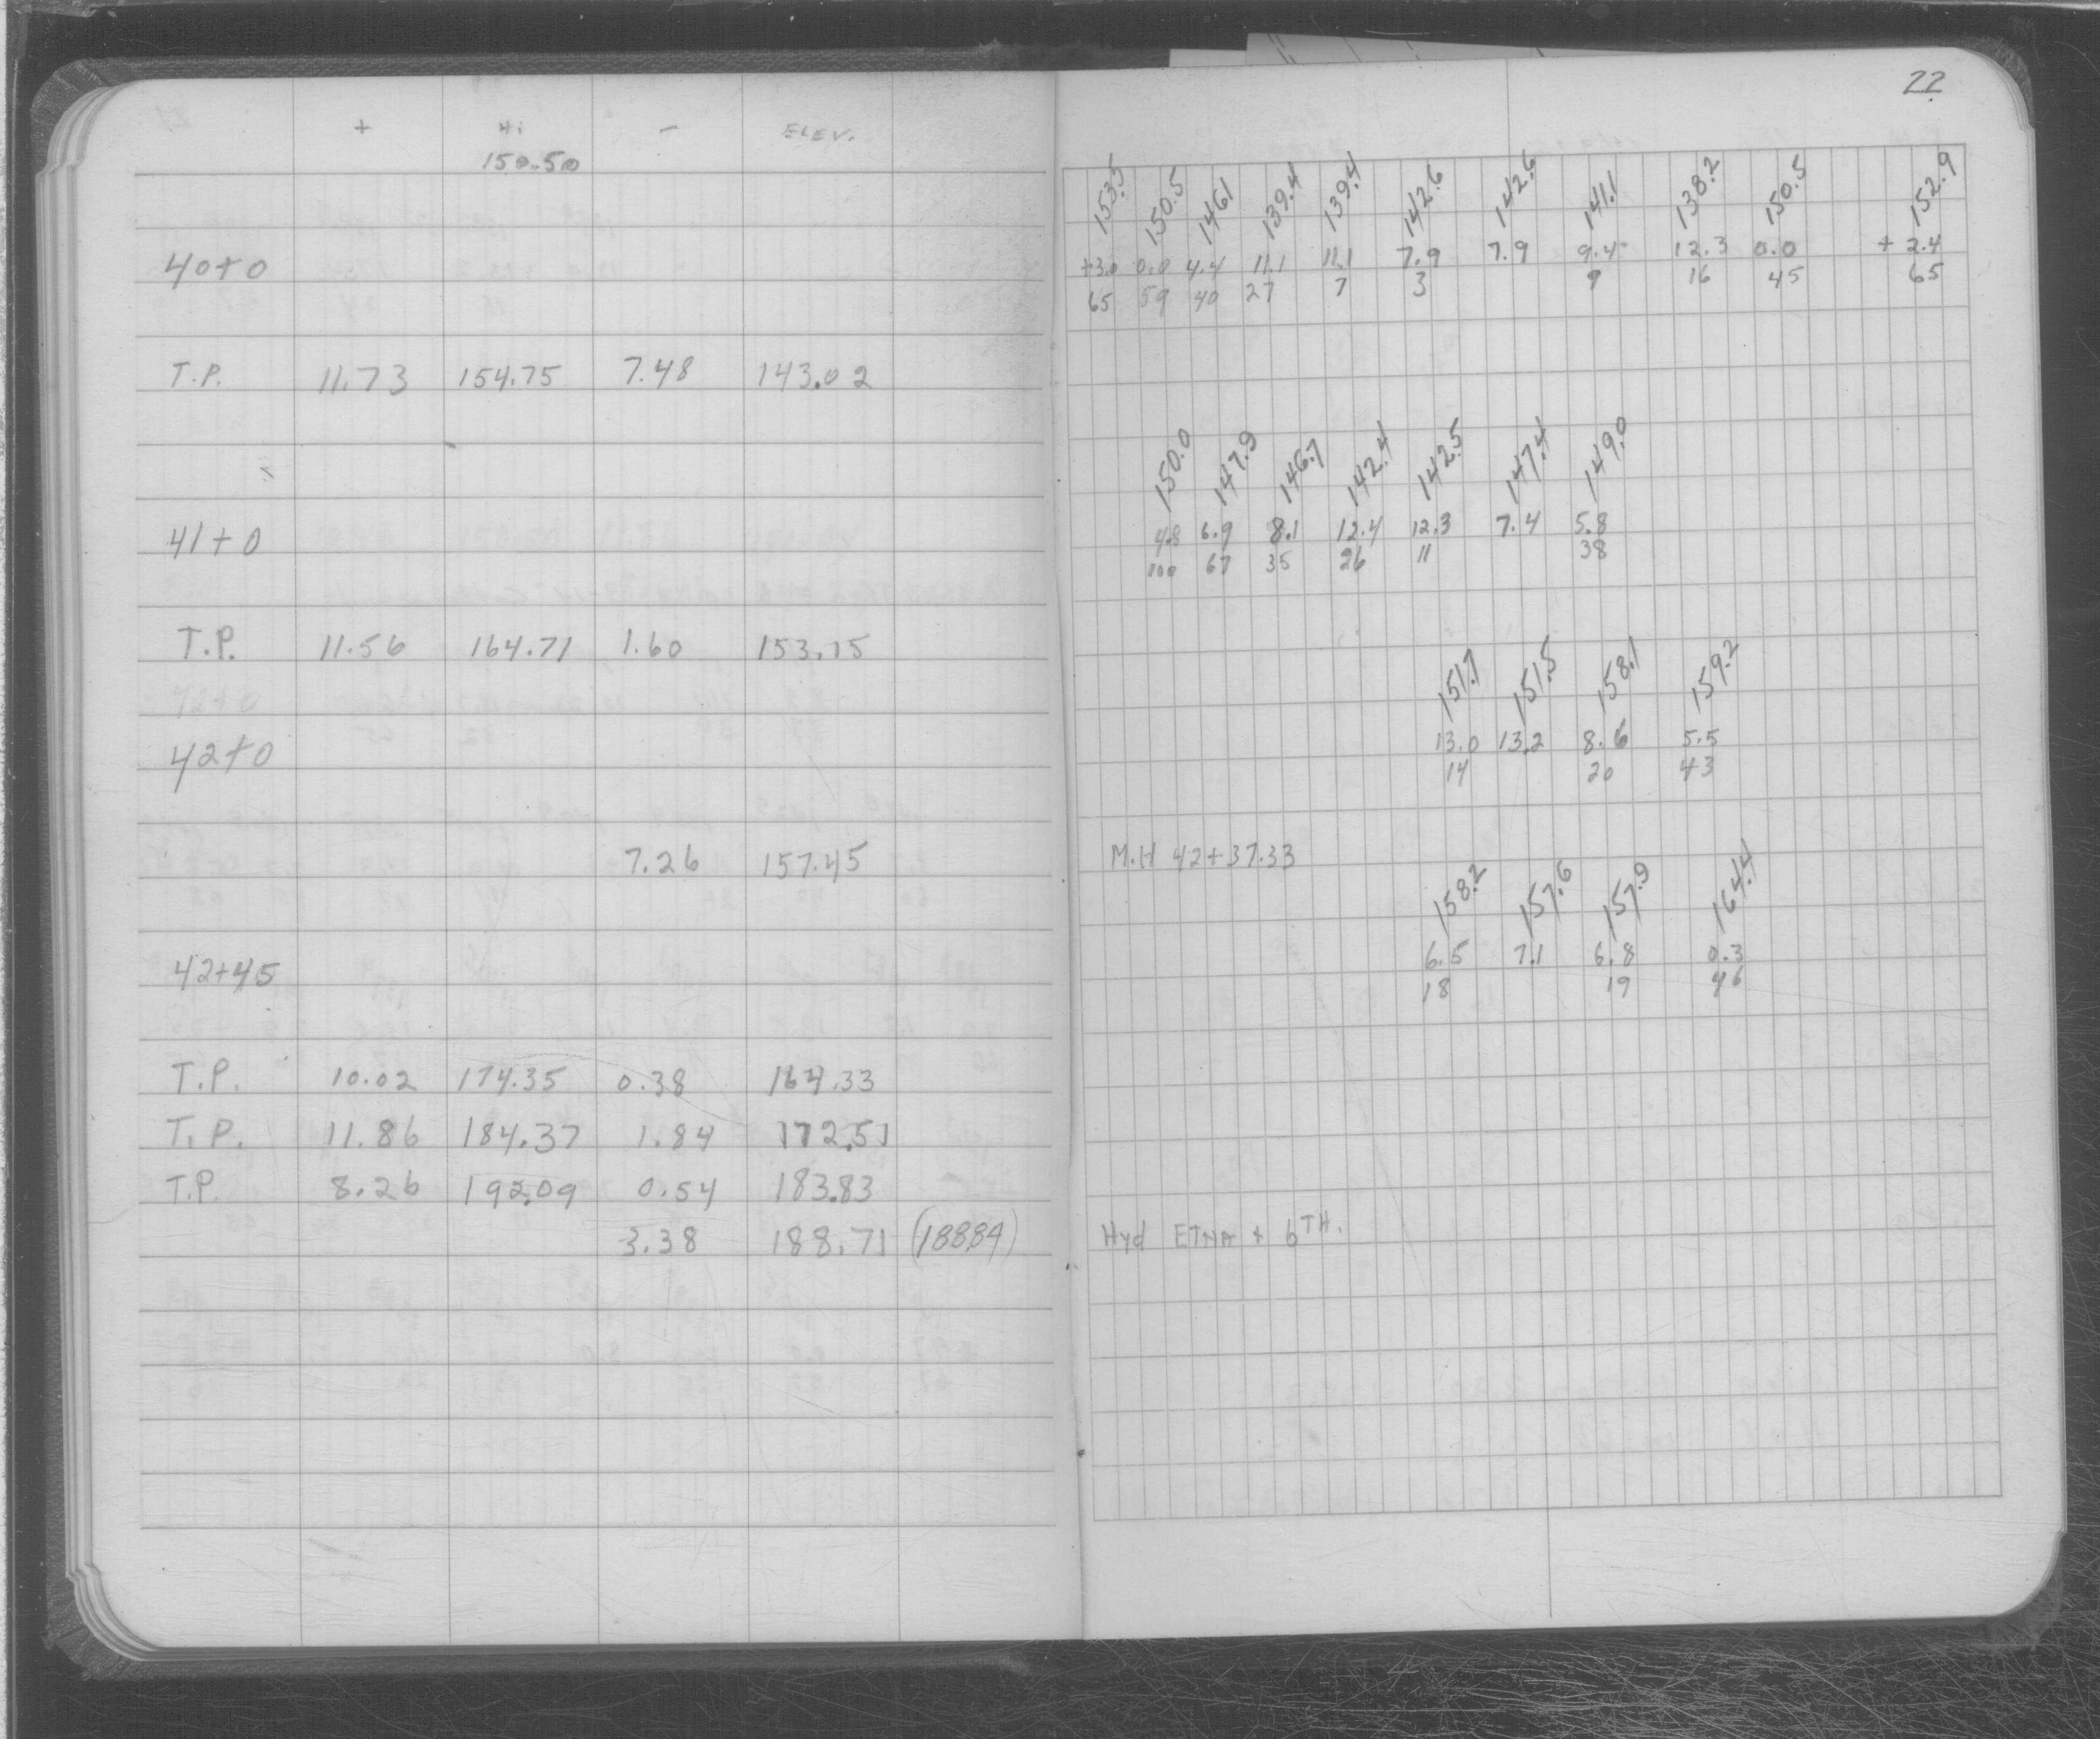 22
+ Hi - ELEV.
150.50
153.5 150.5 146.1 139.4 139.4 142.6 142.6 141.1 138.2 150.5 152.9
40+0 +3.0 0.0 4.4 11.1 11.1 7.9 7.9 9.4 12.3 0.0 +2.4
65 59 40 27 7 3 9 16 45 65
T.P. 11.73 154.75 7.48 143.02
150.0 147.9 146.7 142.4 142.5 147.4 149.0
41+0 4.8 6.9 8.1 12.4 12.3 7.4 5.8
100 67 35 26 11 38
T.P. 11.56 164.71 1.60 153.15
151.7 151.5 158.1 159.2
42+0
42+0 13.0 13.2 8.6 5.5
14 20 43
7.26 157.45 M.H 42+37.33
158.2 157.6 157.9 164.4
42+45 6.5 7.1 6.8 0.3
18 19 46
T.P. 10.02 174.35 0.38 164.33
T.P. 11.86 184.37 1.84 172.51
T.P. 8.26 192.09 0.54 183.83
3.38 188.71 (188.84) Hyd ETNA + 6TH.